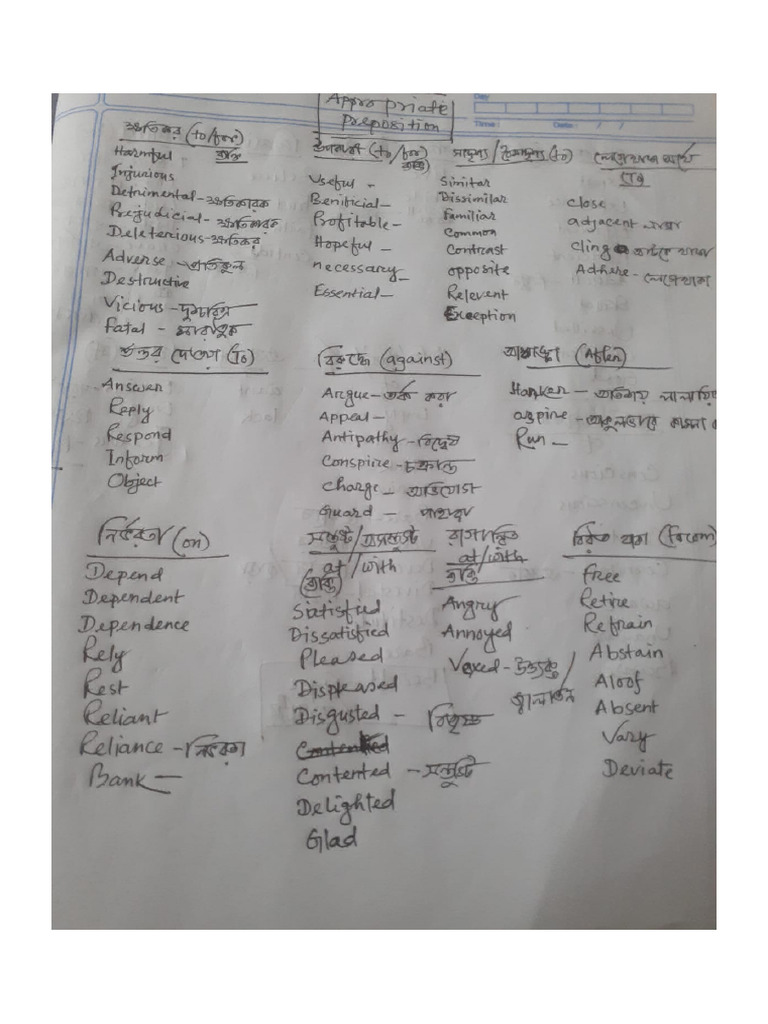 Appropriate
Preposition
Day
Time:
Date: / /
ক্ষতিকর (to/for)
ব্যক্তি
Harmful
Injurious
Detrimental - ক্ষতিকারক
Prejudicial - ক্ষতিকারক
Deleterious - ক্ষতিকর
Adverse - প্রতিকূল
Destructive
Vicious - দুশ্চরিত্র
Fatal - মারাত্মক
উপকারী (to/for)
ব্যক্তি)
Useful -
Benificial -
Profitable -
Hopeful -
necessary -
Essential -
সাদৃশ্য/বৈসাদৃশ্য (to)
Similar
Dissimilar
Familiar
Common
Contrast
opposite
Relevent
Exception
লেগে থাকা অর্থে
to
close
adjacent
Cling আটকে থাকা
Adhere - লেগে থাকা
উত্তর দেওয়া (To)
Answer
Reply
Respond
Inform
Object
বিরুদ্ধে (against)
Argue - তর্ক করা
Appeal -
Antipathy - বিদ্বেষ
Conspire - চক্রান্ত
Charge - অভিযোগ
Guard - পাহারা
(After)
Hanker - অতিশয়
aspire -
Run -
নির্ভরতা (on)
Depend
Dependent
Dependence
Rely
Rest
Reliant
Reliance - নির্ভরতা
Bank -
সন্তুষ্ট/অসন্তুষ্ট
at/with
(ব্যক্তি)
Satisfied
Dissatisfied
Pleased
Displeased
Disgusted - বিতৃষ্ণ
Contented - সন্তুষ্ট
Delighted
Glad
রাগান্বিত
at/with
ব্যক্তি
Angry
Annoyed
Vexed - উত্যক্ত/
জ্বালাতন
বিরত থাকা (From)
Free
Retire
Refrain
Abstain
Aloof
Absent
Vary
Deviate